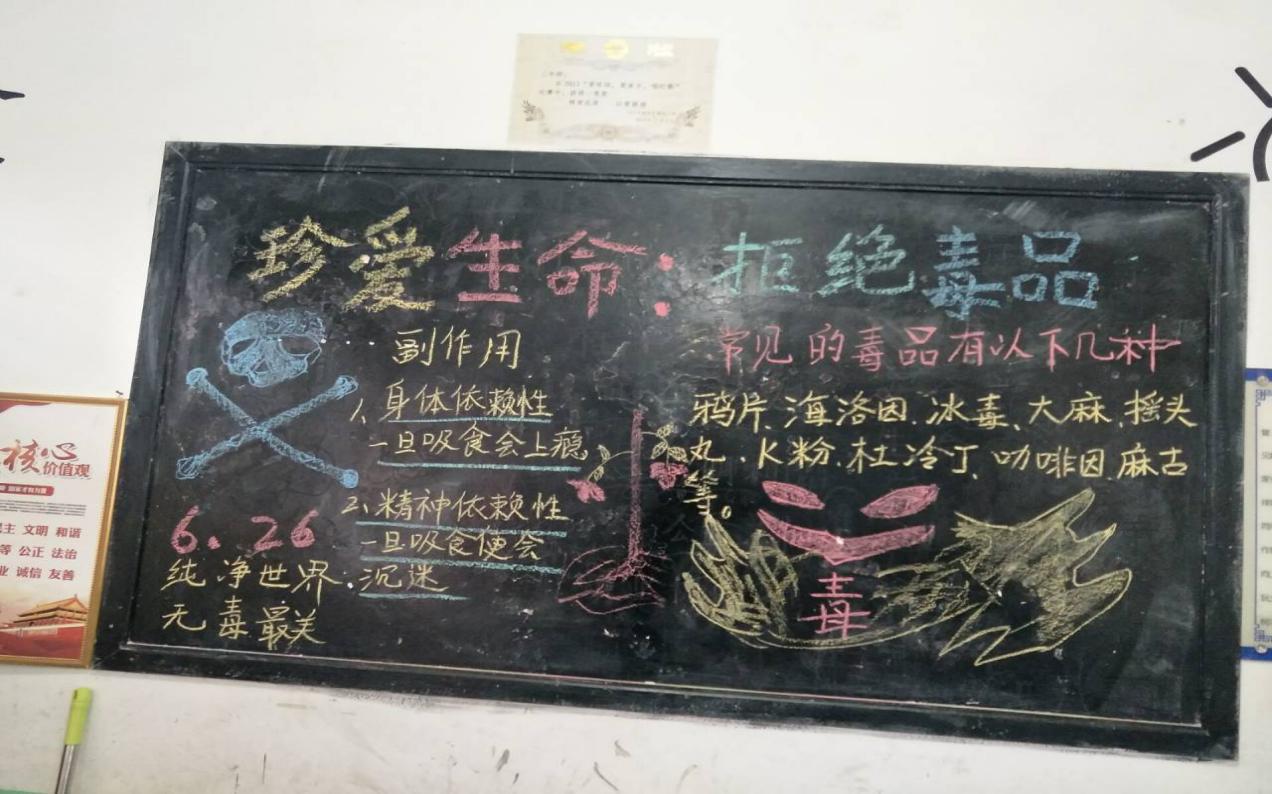 珍爱生命：拒绝毒品
副作用
1、身体依赖性
一旦吸食会上瘾
2、精神依赖性
一旦吸食便会
沉迷
6.26
纯净世界.
无毒最美
常见的毒品有以下几种
鸦片、海洛因、冰毒、大麻、摇头
丸、K粉、杜冷丁、咖啡因、麻古
等。
毒
核心
价值观
主 文明 和谐
等 公正 法治
业 诚信 友善